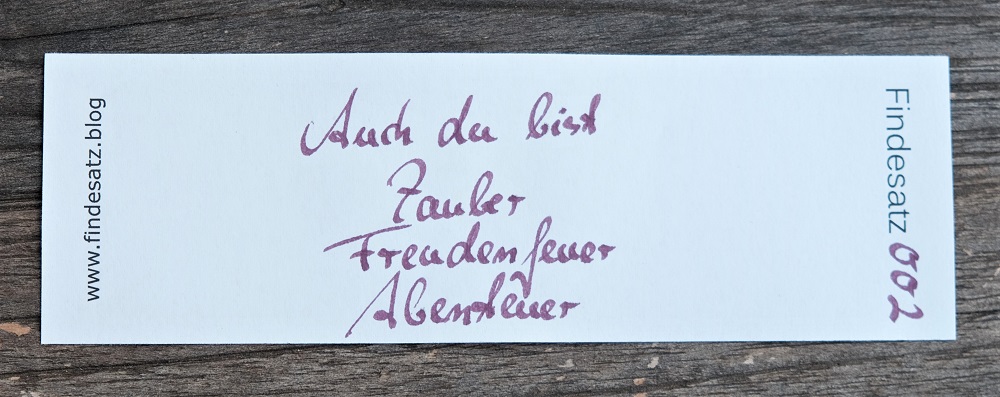 www.findesatz.blog
Auch du bist
Zauber
Freudenfeuer
Abenteuer
Findesatz 002